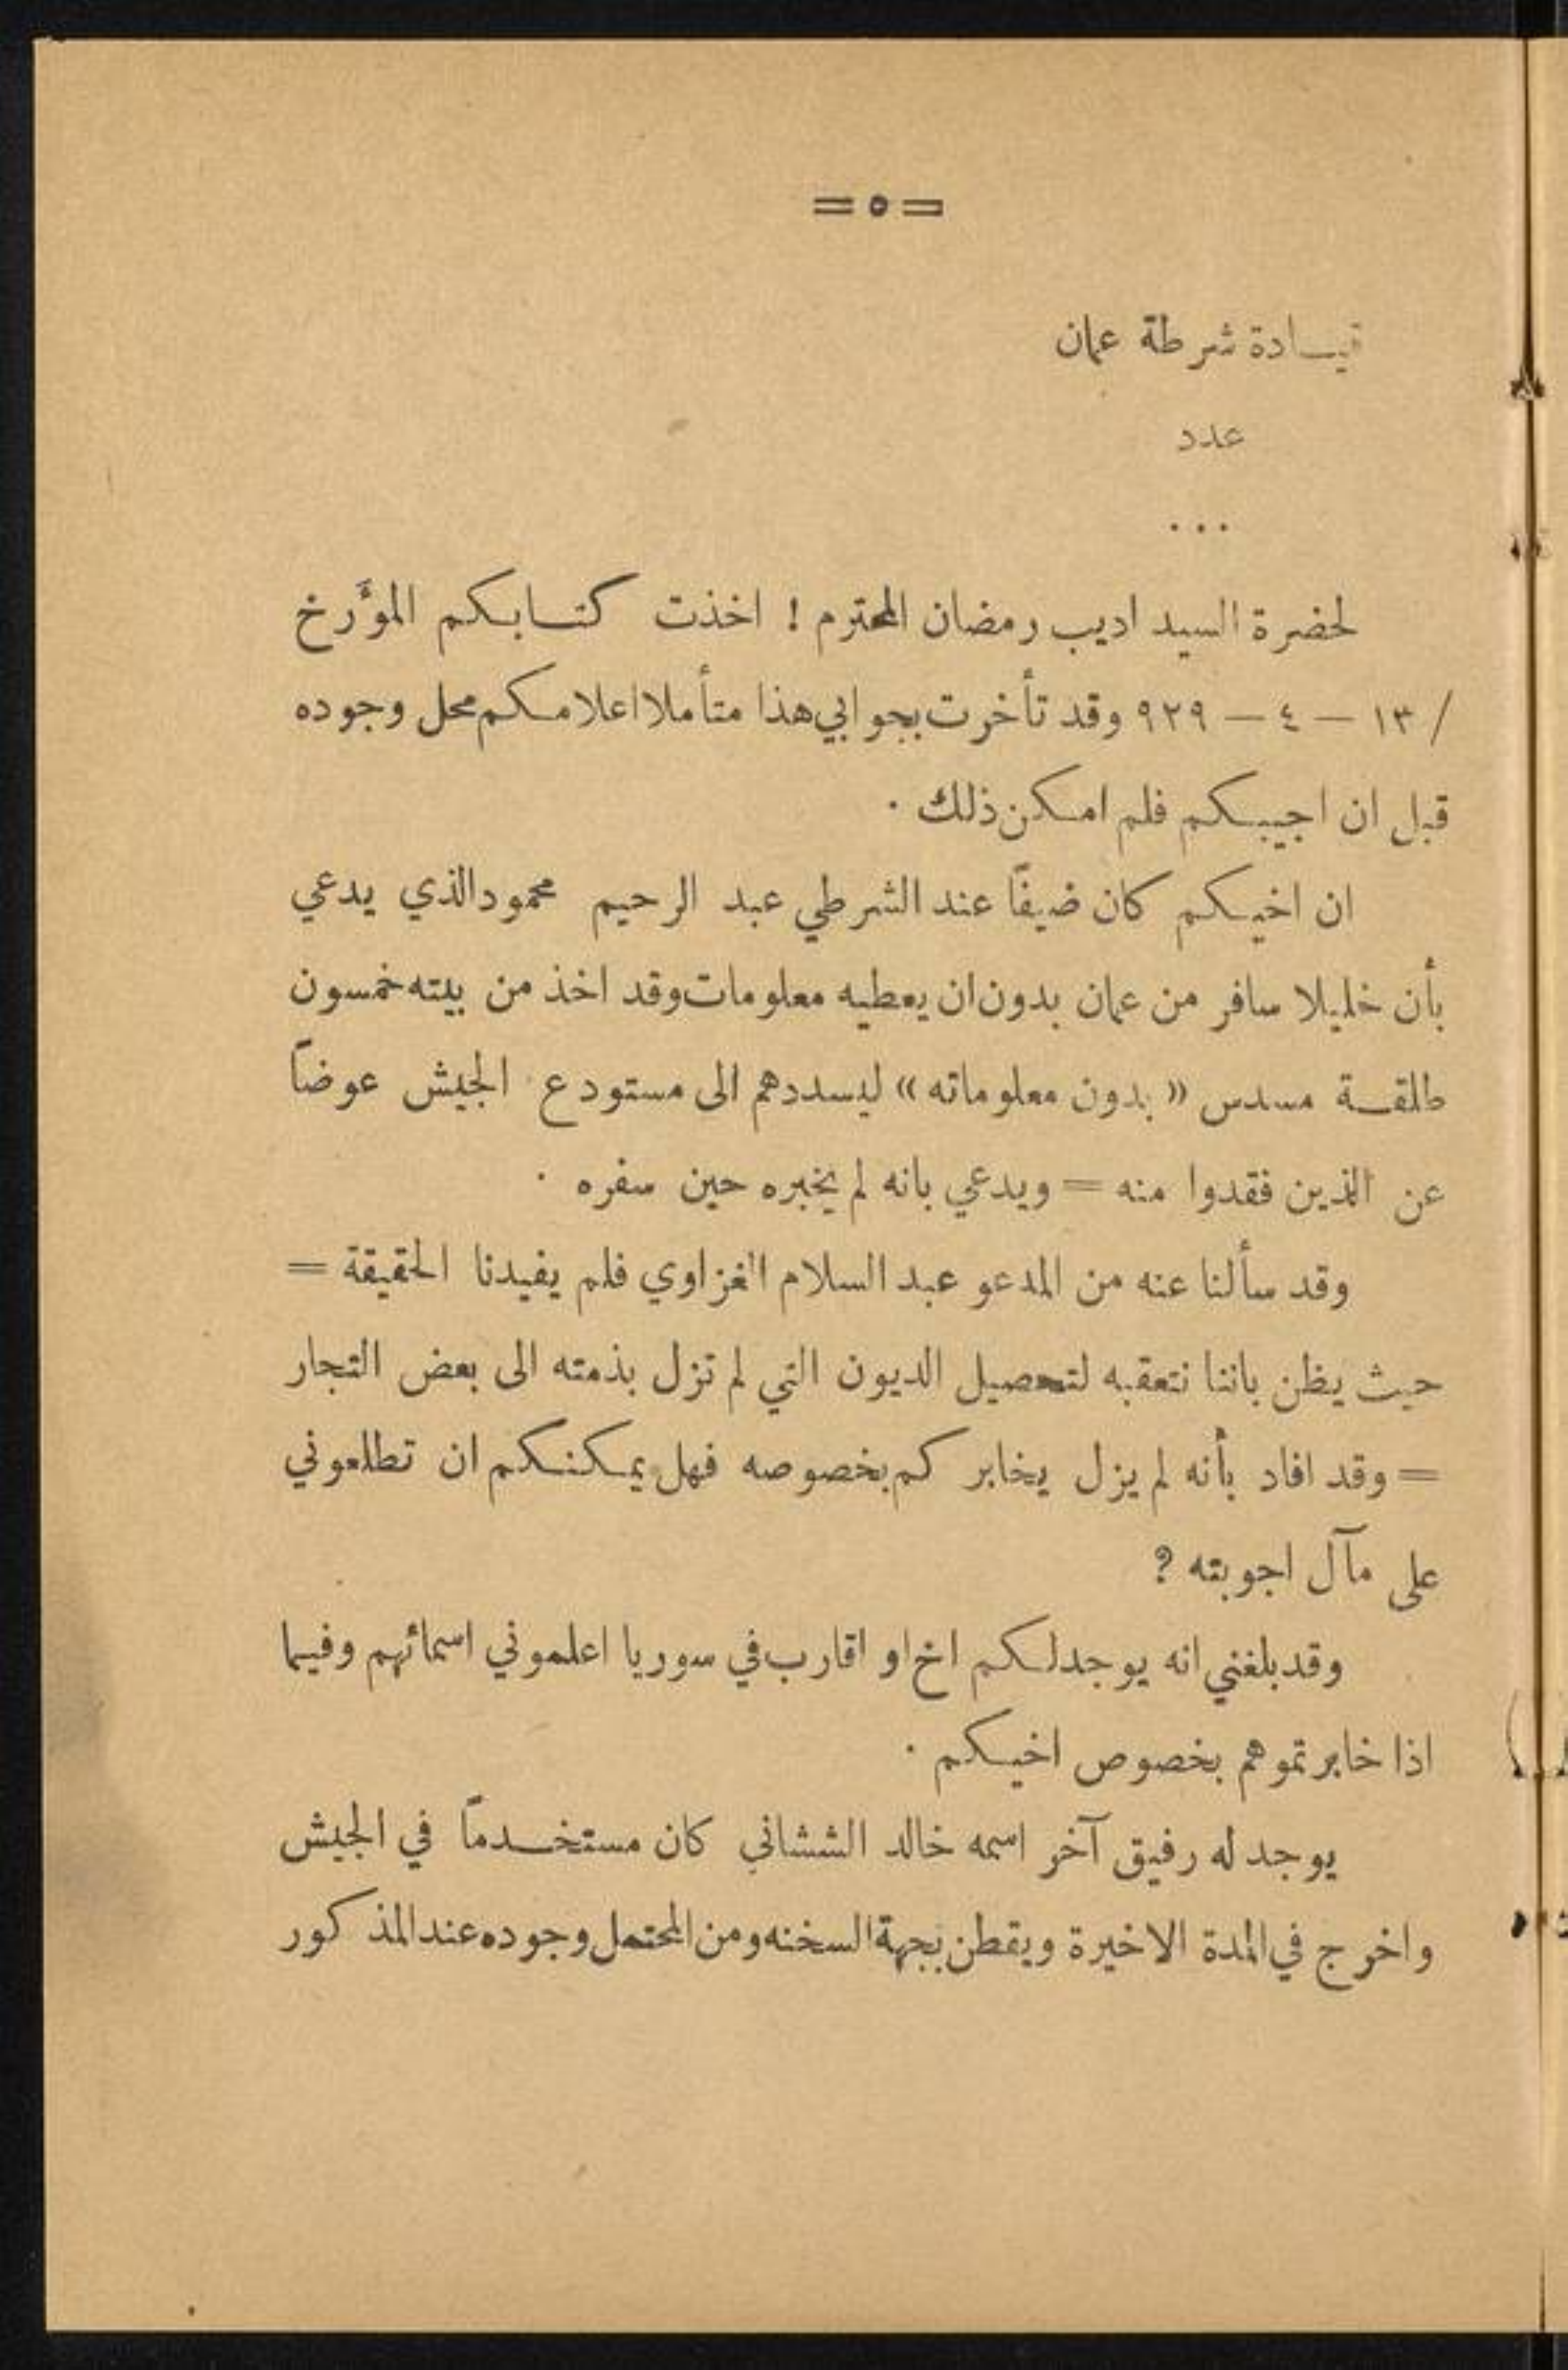 = ٥ =
قيادة شرطة عمان
عدد
...
لحضرة السيد اديب رمضان المحترم ! اخذت كتابكم المؤرخ
/ ١٣ — ٤ — ٩٢٩ وقد تأخرت بجوابي هذا متأملا اعلامكم محل وجوده
قبل ان اجيبكم فلم امكن ذلك .
ان اخيكم كان ضيفًا عند الشرطي عبد الرحيم محمود الذي يدعي
بأن خليلا سافر من عمان بدون ان يعطيه معلومات وقد اخذ من بيته خمسون
طلقة مسدس « بدون معلوماته » ليسددهم الى مستودع الجيش عوضًا
عن الذين فقدوا منه = ويدعي بانه لم يخبره حين سفره .
وقد سألنا عنه من المدعو عبد السلام الغزاوي فلم يفيدنا الحقيقة =
حيث يظن باننا نتعقبه لتحصيل الديون التي لم تزل بذمته الى بعض التجار
= وقد افاد بأنه لم يزل يخابركم بخصوصه فهل يمكنكم ان تطلعوني
على مآل اجوبته ?
وقد بلغني انه يوجد لكم اخ او اقارب في سوريا اعلموني اسمائهم وفيما
اذا خابرتموهم بخصوص اخيكم .
يوجد له رفيق آخر اسمه خالد الششاني كان مستخدمًا في الجيش
واخرج في المدة الاخيرة ويقطن بجهة السخنه ومن المحتمل وجوده عند المذكور